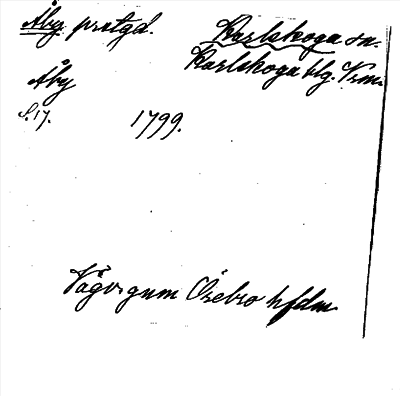 Åby prstgd.
Karlskoga sn.
Karlskoga blg. Vrm.
Åby
S. 17.
1799.
Vägvs gnm Örebro hfdm